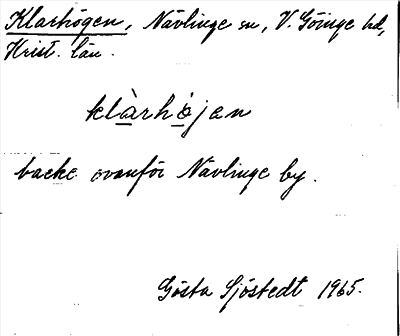 Klarhögen, Nävlinge sn, V. Göinge hd,
Krist. län.
klàrhöjen
backe ovanför Nävlinge by.
Gösta Sjöstedt 1965.